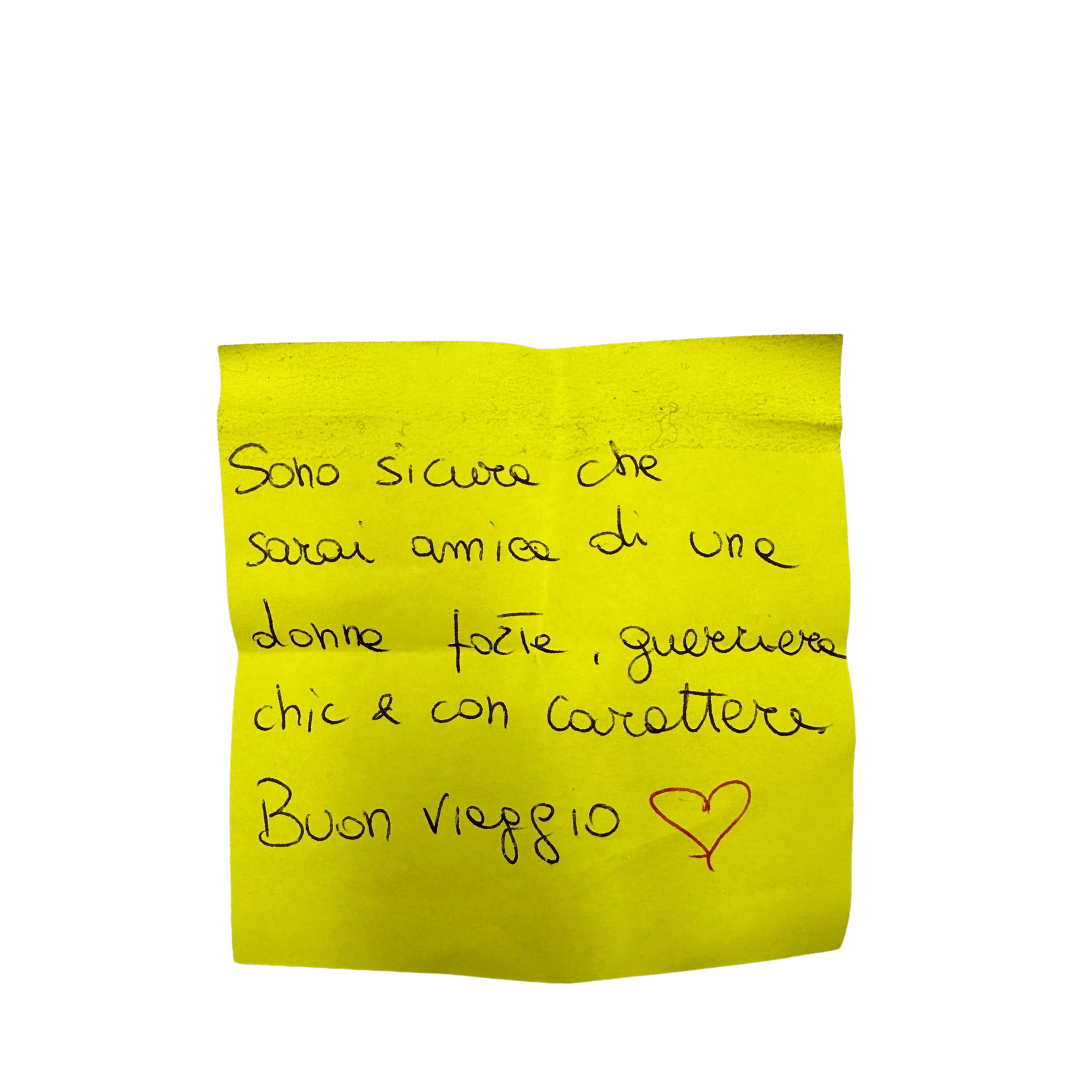 Sono sicura che
sarai amica di una
donna forte, guerriera
chic & con carattere.
Buon viaggio